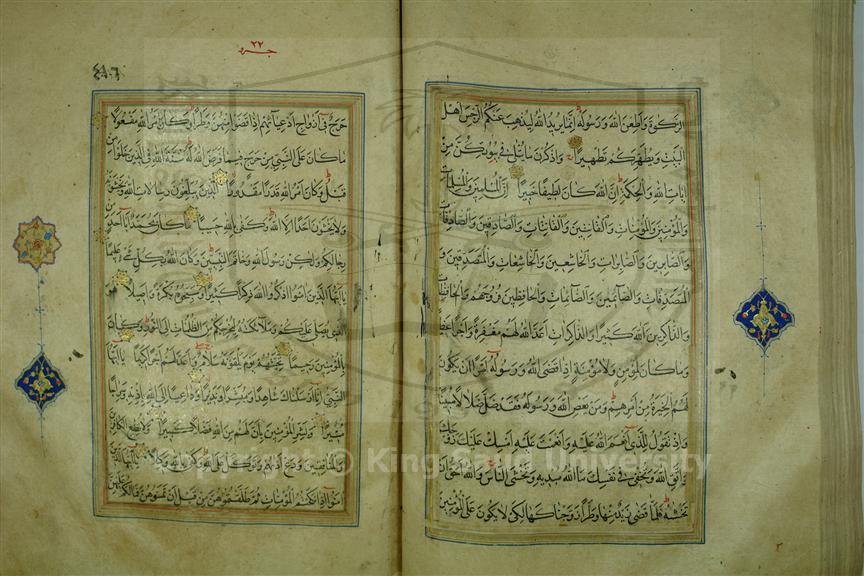 ٢٢
جزء
الزكوة وأطعن الله ورسوله إنما يريد الله ليذهب عنكم الرجس أهل
البيت ويطهركم تطهيرا واذكرن ما يتلى في بيوتكن من
آيات الله والحكمة إن الله كان لطيفا خبيرا إن المسلمين والمسلمات
والمؤمنين والمؤمنات والقانتين والقانتات والصادقين والصادقات
والصابرين والصابرات والخاشعين والخاشعات والمتصدقين و
المتصدقات والصائمين والصائمات والحافظين فروجهم والحافظات
والذاكرين الله كثيرا والذاكرات أعد الله لهم مغفرة وأجرا عظيما
وما كان لمؤمن ولا مؤمنة إذا قضى الله ورسوله أمرا أن يكون
لهم الخيرة من أمرهم ومن يعص الله ورسوله فقد ضل ضلالا مبينا
وإذ تقول للذي أنعم الله عليه وأنعمت عليه أمسك عليك زوجك
واتق الله وتخفي في نفسك ما الله مبديه وتخشى الناس والله أحق أن
تخشه فلما قضى زيد منها وطرا زوجناكها لكي لا يكون على المؤمنين
حرج في أزواج أدعيائهم إذا قضوا منهن وطرا وكان أمر الله مفعولا
ما كان على النبي من حرج فيما فرض الله له سنة الله في الذين خلوا من
قبل وكان أمر الله قدرا مقدورا الذين يبلغون رسالات الله ويخشونه
ولا يخشون أحدا إلا الله وكفى بالله حسيبا ما كان محمد أبا أحد من
رجالكم ولكن رسول الله وخاتم النبيين وكان الله بكل شيء عليما
يا أيها الذين آمنوا اذكروا الله ذكرا كثيرا وسبحوه بكرة وأصيلا هو
الذي يصلي عليكم وملائكته ليخرجكم من الظلمات إلى النور وكان
بالمؤمنين رحيما تحيتهم يوم يلقونه سلام وأعد لهم أجرا كريما يا أيها
النبي إنا أرسلناك شاهدا ومبشرا ونذيرا وداعيا إلى الله بإذنه وسراجا
منيرا وبشر المؤمنين بأن لهم من الله فضلا كبيرا ولا تطع الكافرين
والمنافقين ودع أذاهم وتوكل على الله وكفى بالله وكيلا يا أيها الذين
آمنوا إذا نكحتم المؤمنات ثم طلقتموهن من قبل أن تمسوهن فما لكم عليهن
Copyright © King Saud University